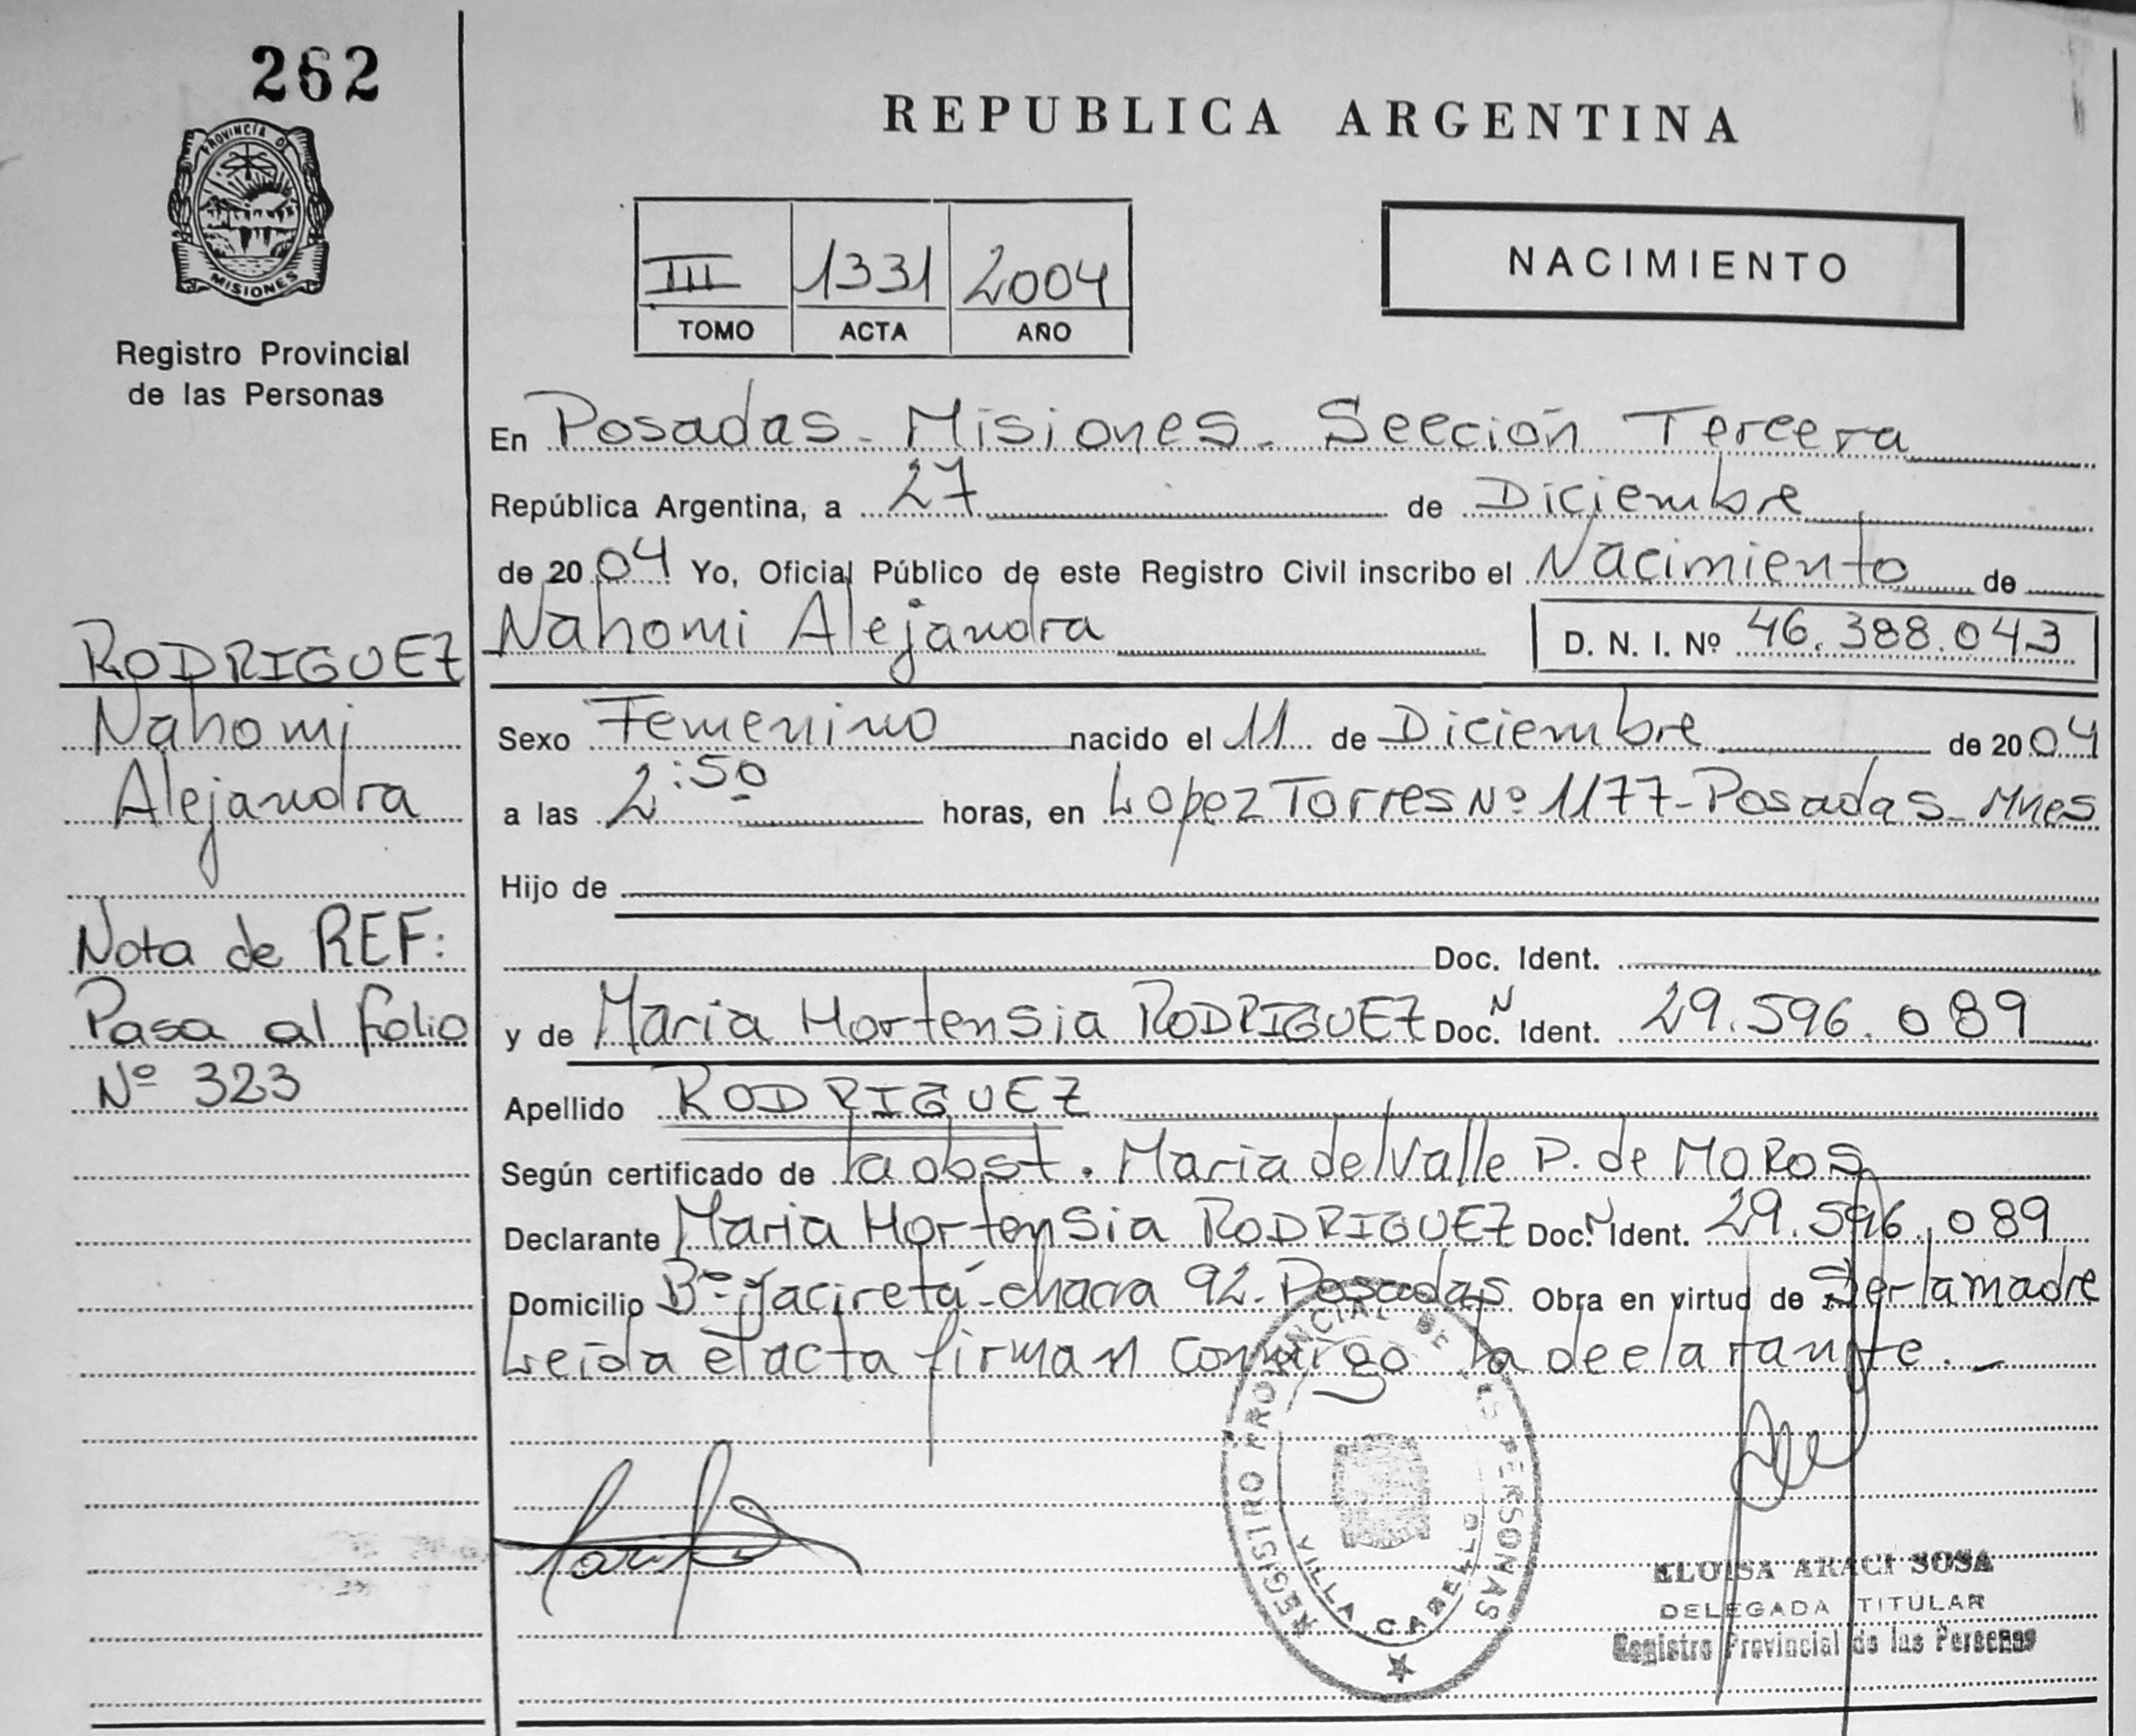 262
PROVINCIA DE
MISIONES
Registro Provincial
de las Personas
REPUBLICA ARGENTINA
III 1331 2004
TOMO ACTA AÑO
NACIMIENTO
En Posadas - Misiones - Sección Tercera
República Argentina, a 27 de Diciembre
de 2004 Yo, Oficial Público de este Registro Civil inscribo el Nacimiento de
Nahomi Alejandra D. N. I. Nº 46.388.043
Sexo Femenino nacido el 11 de Diciembre de 2004
a las 2:50 horas, en Lopez Torres Nº 1177 - Posadas - Mnes
Hijo de
Doc. Ident.
y de Maria Hortensia RODRIGUEZ Doc. N Ident. 29.596.089
Apellido RODRIGUEZ
Según certificado de la obst. Maria del Valle P. de MOROS
Declarante Maria Hortensia RODRIGUEZ Doc. N Ident. 29.596.089
Domicilio Bº Yacireta - chacra 92 - Posadas Obra en virtud de Ser la madre
Leida el acta firman conmigo la declarante. -
RODRIGUEZ
Nahomi
Alejandra
Nota de REF:
Pasa al folio
Nº 323
REGISTRO PROVINCIAL DE LAS PERSONAS
VILLA CABELLO
ELOISA ARACI SOSA
DELEGADA TITULAR
Registro Provincial de las Personas